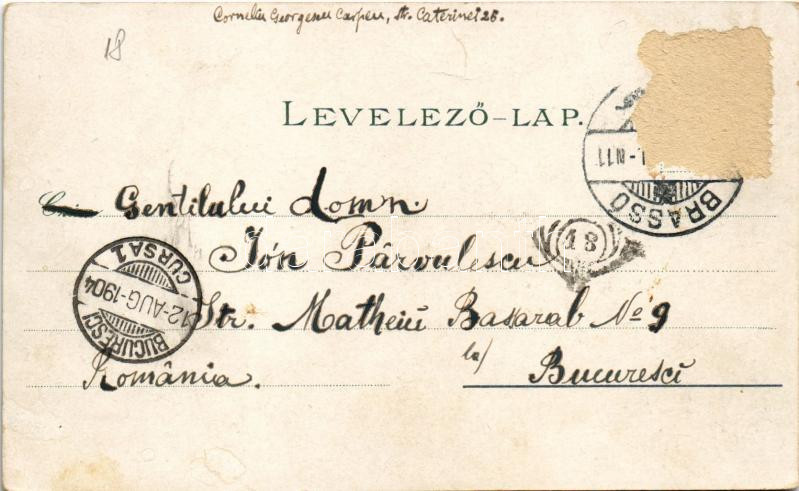 Corneliu Georgescu Carpen, Str. Caterinei 28.
18
LEVELEZŐ-LAP.
BRASSÓ
Gentilului Domn.
Jón Pârvulescu
18
BUCURESCI
12-AUG-1904
CURSA 1
Str. Matheiú Basarab No 9
la/
România. Bucuresci